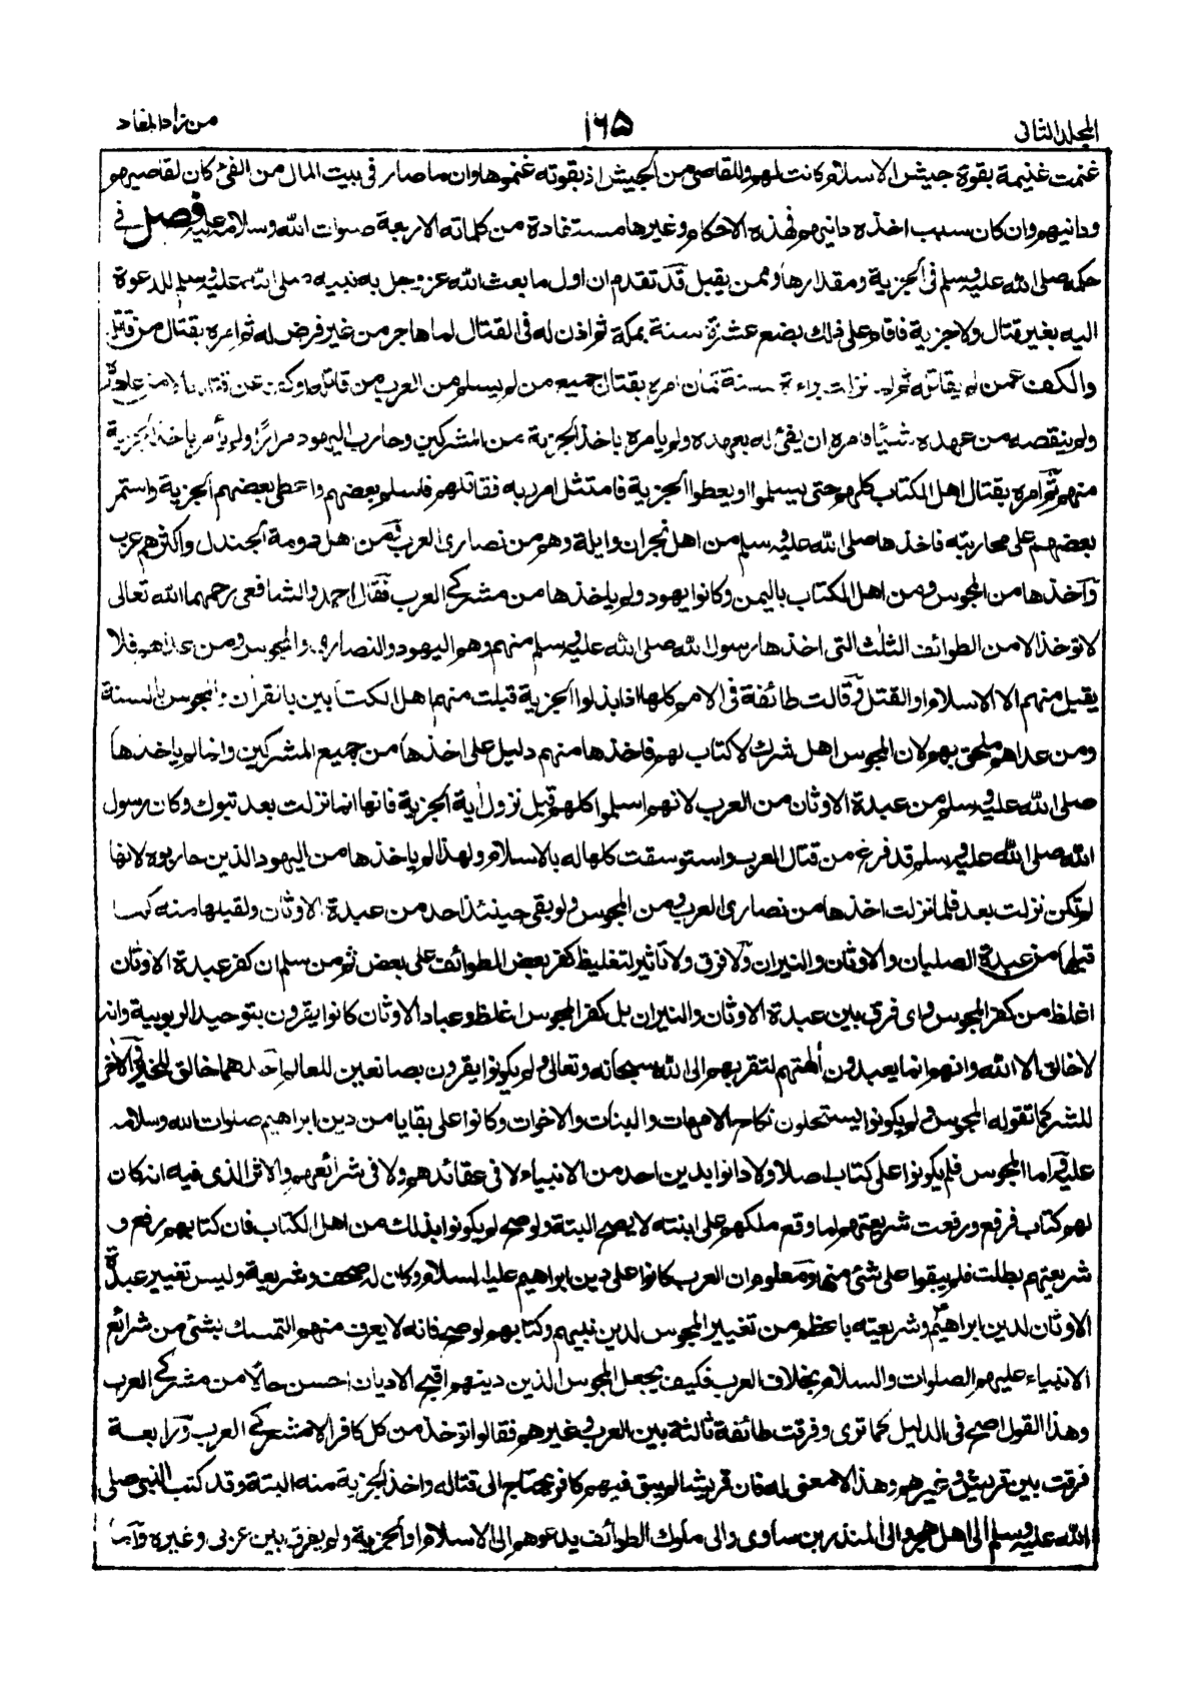 المجلد الثانى
١٦٥
من زاد المعاد
غنمت غنيمة بقوة جيش الاسلام كانت لهم وللقاصى من الجيش اذ بقوته غنموها وان ما صار فى بيت المال من الفئ كان لقاصيهم
ودانيهم وان كان سبب اخذه دانيهم فهذه الاحكام وغيرها مستفادة من كلماته الاربعة صلوات الله وسلامه عليه فصل فى
حكمه صلى الله عليه وسلم فى الجزية ومقدارها وممن يقبل قد تقدم ان اول ما بعث الله عز وجل به نبيه صلى الله عليه وسلم للدعوة
اليه بغير قتال ولا جزية فاقام على ذلك بضع عشرة سنة بمكة ثم اذن له فى القتال لما هاجر من غير فرض له ثم امره بقتال من قاتله
والكف عمن لم يقاتله ثم لما نزلت براءة سنة ثمان امره بقتال جميع من لم يسلم من العرب من قاتله او كف عن قتاله الا من عاهده
ولم ينقصه من عهده شيئا فامره ان يفئ له بعهده ولم يامره باخذ الجزية من المشركين وحارب اليهود مرارا ولم يأمر باخذ الجزية
منهم ثم امره بقتال اهل الكتاب كلهم حتى يسلموا او يعطوا الجزية فامتثل امر ربه فقاتلهم فاسلم بعضهم واعطى بعضهم الجزية واستمر
بعضهم على محاربته فاخذها صلى الله عليه وسلم من اهل نجران وايلة وهم من نصارى العرب ثم من اهل دومة الجندل واكثرهم عرب
وآخذها من المجوس ومن اهل الكتاب باليمن وكانوا يهود ولم ياخذها من مشركى العرب فقال احمد والشافعى رحمهما الله تعالى
لا تؤخذ الا من الطوائف الثلث التى اخذها رسول الله صلى الله عليه وسلم منهم وهم اليهود والنصارى والمجوس ومن عداهم فلا
يقبل منهم الا الاسلام او القتل وقالت طائفة فى الامم كلها اذا بذلوا الجزية قبلت منهم اهل الكتابين بالقرآن والمجوس بالسنة
ومن عداهم ملحق بهم لان المجوس اهل شرك لا كتاب لهم فاخذها منهم دليل على اخذها من جميع المشركين وانما لم ياخذها
صلى الله عليه وسلم من عبدة الاوثان من العرب لانهم اسلموا كلهم قبل نزول آية الجزية فانها انما نزلت بعد تبوك وكان رسول
الله صلى الله عليه وسلم قد فرغ من قتال العرب واستوسقت كلها له بالاسلام ولهذا لم ياخذها من اليهود الذين حاربوه لانها
لم تكن نزلت بعد فلما نزلت اخذها من نصارى العرب ومن المجوس ولو بقى حينئذ احد من عبدة الاوثان ولقبلها منه كما
قبلها من عبدة الصلبان والاوثان والنيران ولا فرق ولا تاثير لتغليظ كفر بعض الطوائف على بعض ثم من سلم ان كفر عبدة الاوثان
اغلظ من كفر المجوس واى فرق بين عبدة الاوثان والنيران بل كفر المجوس اغلظ وعباد الاوثان كانوا يقرون بتوحيد الربوبية وانه
لا خالق الا الله وانهم انما يعبدون آلهتهم لتقربهم الى الله سبحانه وتعالى ولم يكونوا يقرون بصانعين للعالم احدهما خالق للخير والآخر
للشر كما تقوله المجوس ولم يكونوا يستحلون نكاح الامهات والبنات والاخوات وكانوا على بقايا من دين ابراهيم صلوات الله وسلامه
عليه اما المجوس فلم يكونوا على كتاب اصلا ولا دانوا بدين احد من الانبياء لا فى عقائدهم ولا فى شرائعهم والاثر الذى فيه انه كان
لهم كتاب فرفع ورفعت شريعتهم لما وقع ملكهم على ابنته لا يصح البتة ولو صح لم يكونوا بذلك من اهل الكتاب فان كتابهم رفع و
شريعتهم بطلت فلم يبقوا على شئ منها ومعلوم ان العرب كانوا على دين ابراهيم عليه السلام وكان له صحف وشريعة وليس تغيير عبدة
الاوثان لدين ابراهيم وشريعته باعظم من تغيير المجوس لدين نبيهم وكتابهم لو صح فانه لا يعرف منهم التمسك بشئ من شرائع
الانبياء عليهم الصلوات والسلام بخلاف العرب فكيف يجعل المجوس الذين دينهم اقبح الاديان احسن حالا من مشركى العرب
وهذا القول اصح فى الدليل كما ترى وفرقت طائفة ثالثة بين العرب وغيرهم فقالوا تؤخذ من كل كافر الا مشركى العرب ورابعة
فرقت بين قريش وغيرهم وهذا لا معنى له فان قريشا لم يبق فيهم كافر يحتاج الى قتاله واخذ الجزية منه البتة وقد كتب النبى صلى
الله عليه وسلم الى اهل هجر والى المنذر بن ساوى والى ملوك الطوائف يدعوهم الى الاسلام او الجزية ولم يفرق بين عربى وغيره واما